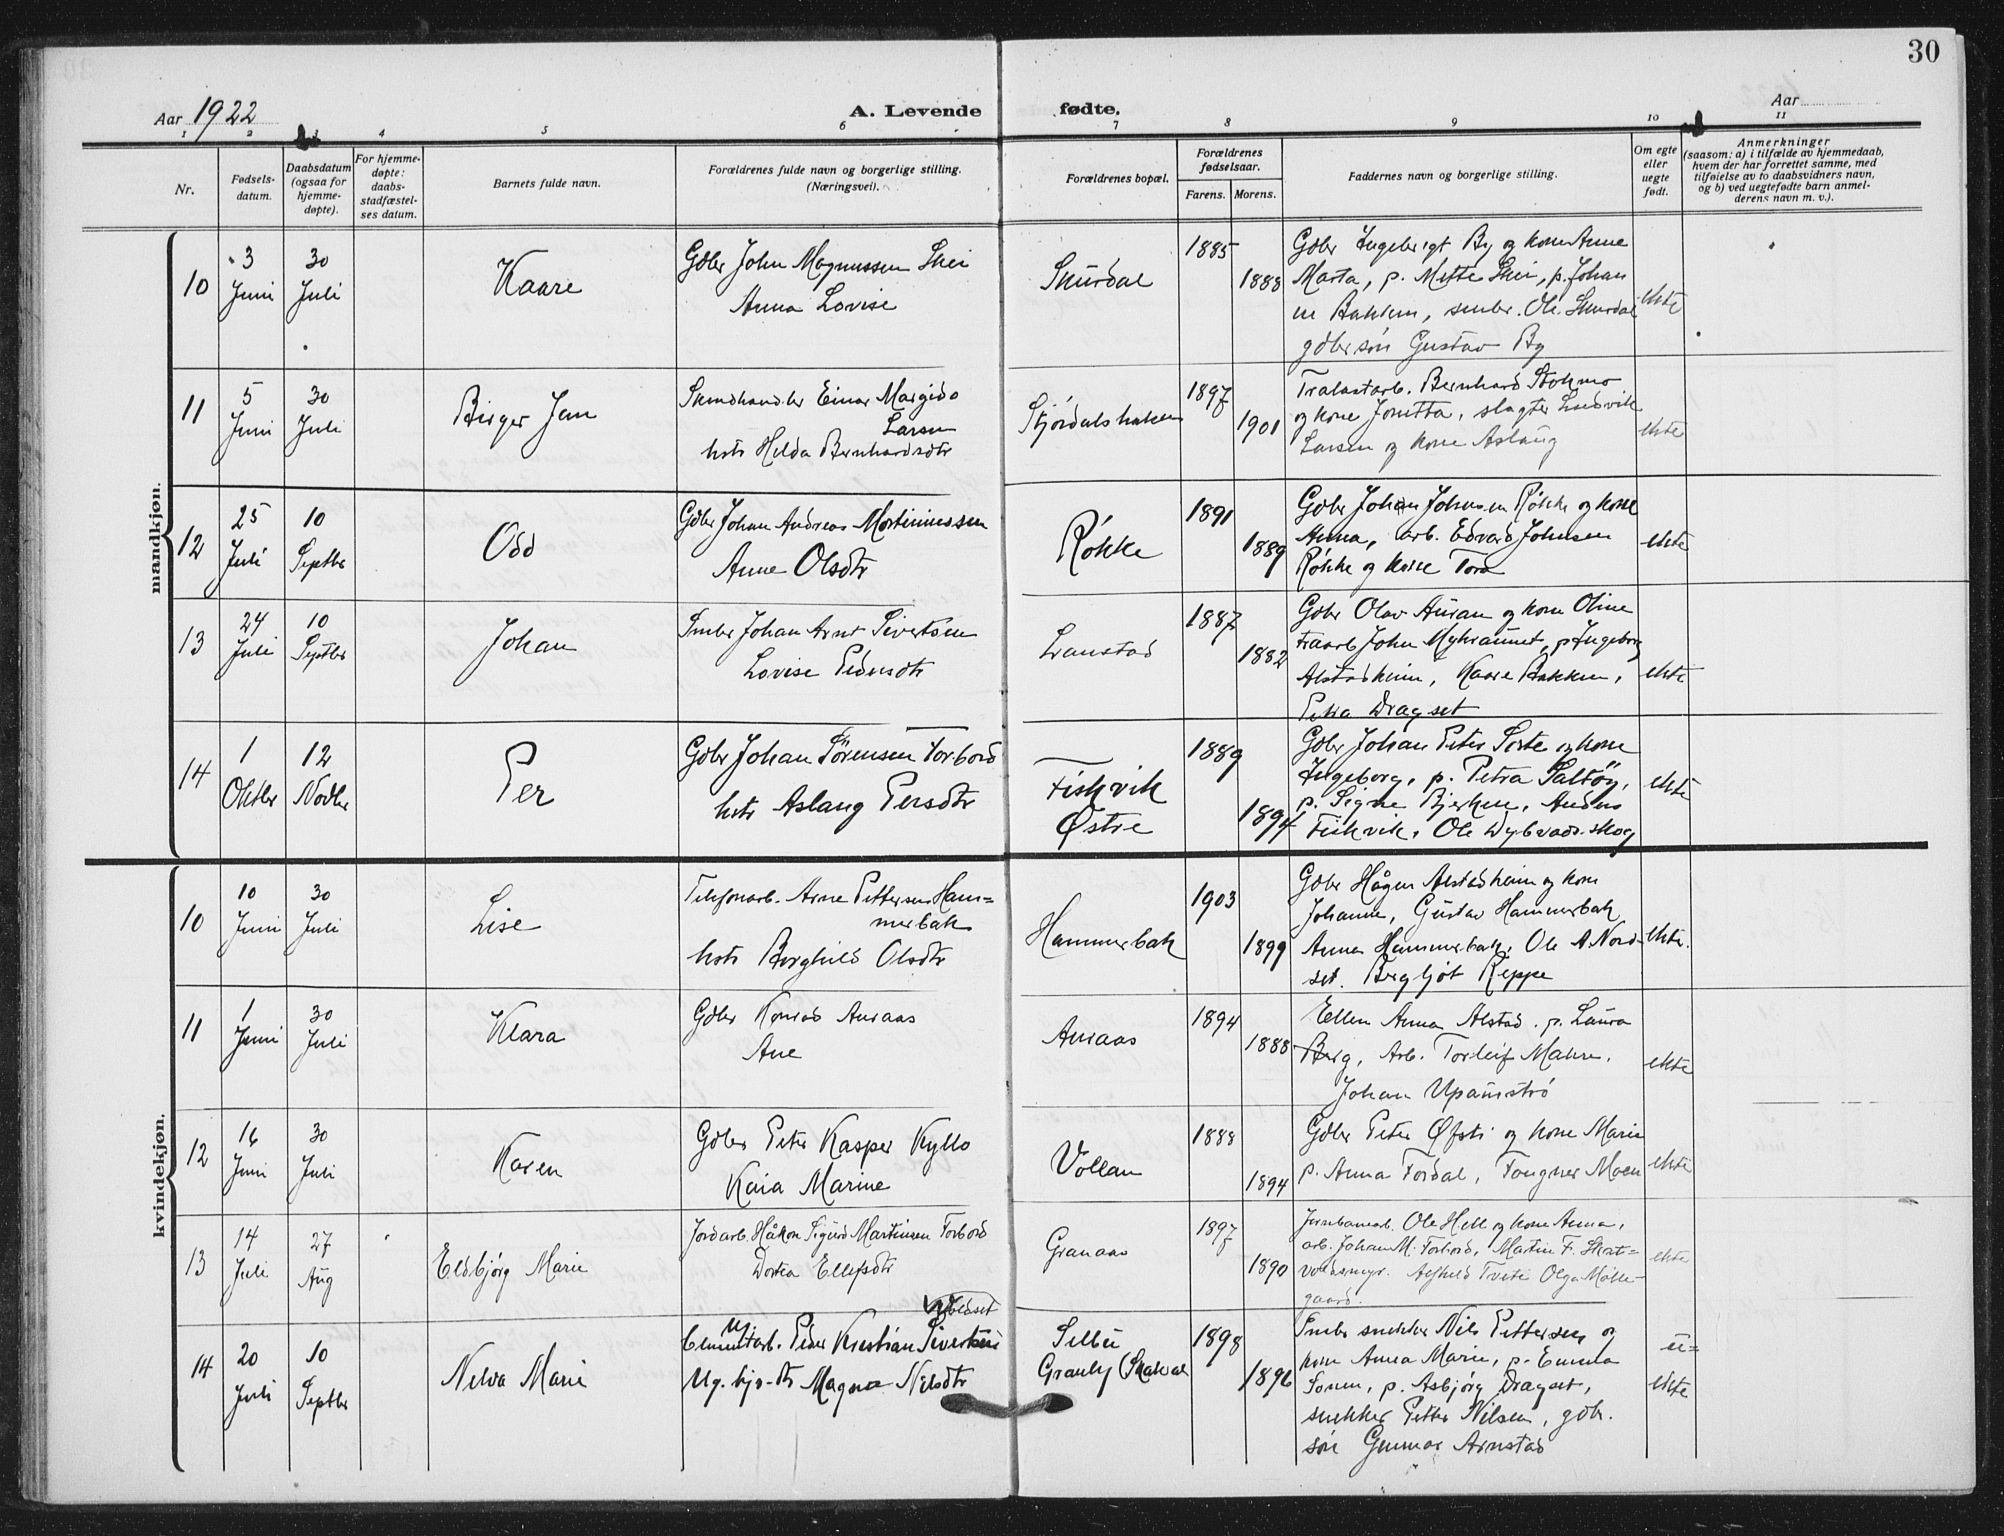 30
Aar 1922
A. Levende fødte.
Aar
1 2 3 4 5 6 7 8 9 10 11
Nr.
Fødsels-
datum.
Daabsdatum
(ogsaa for
hjemme-
døpte).
For hjemme-
døpte:
daabs-
stadfæstel-
ses datum.
Barnets fulde navn.
Forældrenes fulde navn og borgerlige stilling.
(Næringsvei).
Forældrenes bopæl.
Forældrenes
fødselsaar.
Farens. Morens.
Faddernes navn og borgerlige stilling.
Om egte
eller
uegte
født.
Anmerkninger
(saasom: a) i tilfælde av hjemmedaab,
hvem der har forrettet samme, med
tilføielse av to daabsvidners navn,
og b) ved uegtefødte barn anmel-
derens navn m. v.).
mandkjøn.
10
3
Juni
30
Juli
Kaare
Gdbr John Magnussen Skei
Anna Lovise
Skurdal
1885
1888
Gdbr Ingebrigt By og kone Anne
Marta, p. Mette Skei, p. Johan
ne Bakken, smbr. Ole Skurdal
gdbrsøn Gustav By
ekte
11
5
Juni
30
Juli
Birger Jan
Skindhandler Einar Margido
Larsen
hstr Helda Bernhardsdtr
Stjørdalshalsen
1897
1901
Tralastarb. Bernhard Stokmo
og kone Jonitta, slagter Ludvik
Larsen og kone Aslaug
ekte
12
25
Juli
10
Septbr
Odd
Gdbr Johan Andreas Mortinussen
Anne Olsdtr
Røkke
1891
1889
Gdbr Johan Johnsen Røkke og kone
Anna, arb. Edvard Johnsen
Røkke og kone Tora
ekte
13
24
Juli
10
Septbr
Johan
Smbr Johan Arnt Sivertsen
Lovise Pedersdtr
Lianstad
1887
1882
Gdbr Olav Auran og kone Oline
Fraarb John Myhraunet, p Ingeborg
Alstadheim, Kaare Bakken,
Petra Dragset
ekte
14
1
Oktbr
12
Novbr
Per
Gdbr Johan Sørensen Forbord
hstr Aslaug Persdtr
Fiskvik
Østre
1889
1894
Gdbr Johan Peter Sorte og kone
Ingeborg, p. Petra Saltøy,
p. Signe Bjerken, Anders
Fiskvik, Ole Dybvadsskog
ekte
kvindekjøn.
10
10
Juni
30
Juli
Lise
Telefonarb. Arne Pettersen Ham=
merbak
hstr Borghild Olsdtr
Hammerbak
1903
1899
Gdbr Hågen Alstadheim og kone
Johanne, Gustav Hammerbak
Anna Hammerbak, Ole A. Nord-
set. Bergljot Reppe
ekte.
11
1
Juni
30
Juli
Klara
Gdbr Konrad Auraas
Ane
Auraas
1894
1888
Ellen Anna Alstad. p. Laura
Berg, Arb. Torleif Mæhre.
Johan Upamstrø
ekte
12
16
Juni
30
Juli
Karen
Gdbr Peter Kasper Kyllo
Kaia Marine
Vollan
1888
1894
Gdbr Peter Øfsti og kone Marie
p. Anna Fordal, Fougner Moen
ekte
13
14
Juli
27
Aug
Eldbjørg Marie
Jordarb. Håkon Sigurd Martinsen Forbord
Dortea Ellefsdtr
Granaas
1897
1890
Jernbanearb. Ole Hell og kone Anna,
arb. Johan M. Forbord, Martin F. Skat=
voldsmyr. Alfhild Tveite Olga Mølle-
gaard.
ekte
14
20
Juli
10
Septbr
Nelva Marie
Ug. Cementarb. Peder Kristian Sivertsen
Ug. hjv-dtr Magna Nilsdtr
Selbu
Granby (Skatval
1898
1896
Smbr snekker Nils Pettersen og
kone Anna Marie, p. Emma
Sonen, p. Asbjørg Dragset,
snekker Petter Nilsen, gdbr.
søn Gunnar Arnstad
u=
ekte